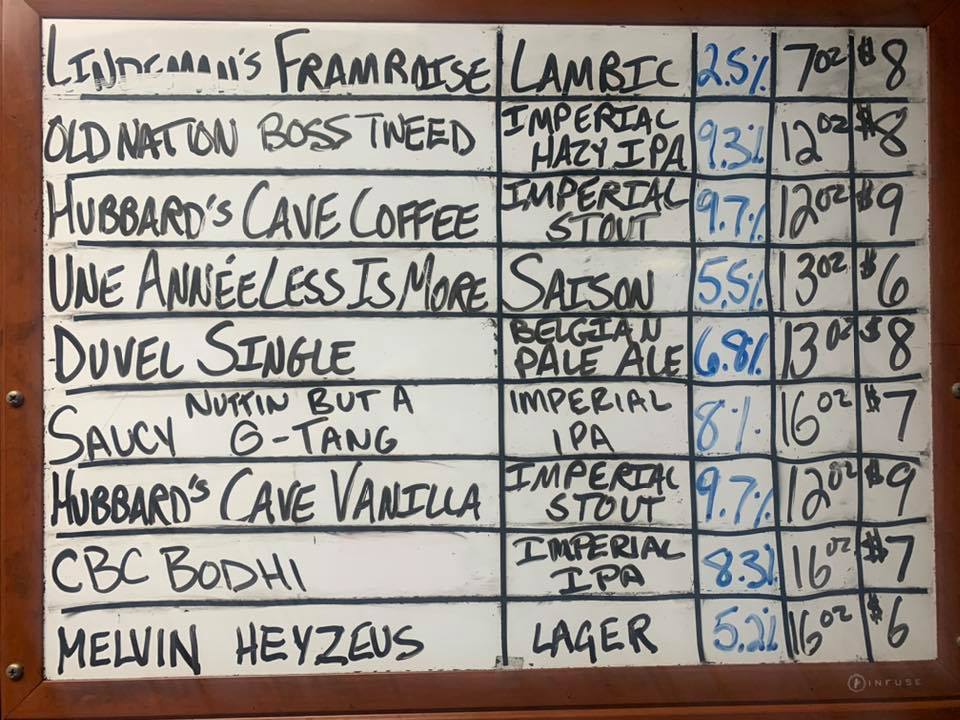 LINDEMAN'S FRAMBOISE LAMBIC 2.5% 7OZ $8
OLD NATION BOSS TWEED IMPERIAL HAZY IPA 9.3% 12OZ $8
HUBBARD'S CAVE COFFEE IMPERIAL STOUT 9.7% 12OZ $9
UNE ANNÉE LESS IS MORE SAISON 5.5% 13OZ $6
DUVEL SINGLE BELGIAN PALE ALE 6.8% 13OZ $8
SAUCY NUTTIN BUT A G-TANG IMPERIAL IPA 8% 16OZ $7
HUBBARD'S CAVE VANILLA IMPERIAL STOUT 9.7% 12OZ $9
CBC BODHI IMPERIAL IPA 8.3% 16OZ $7
MELVIN HEYZEUS LAGER 5.2% 16OZ $6
INFUSE